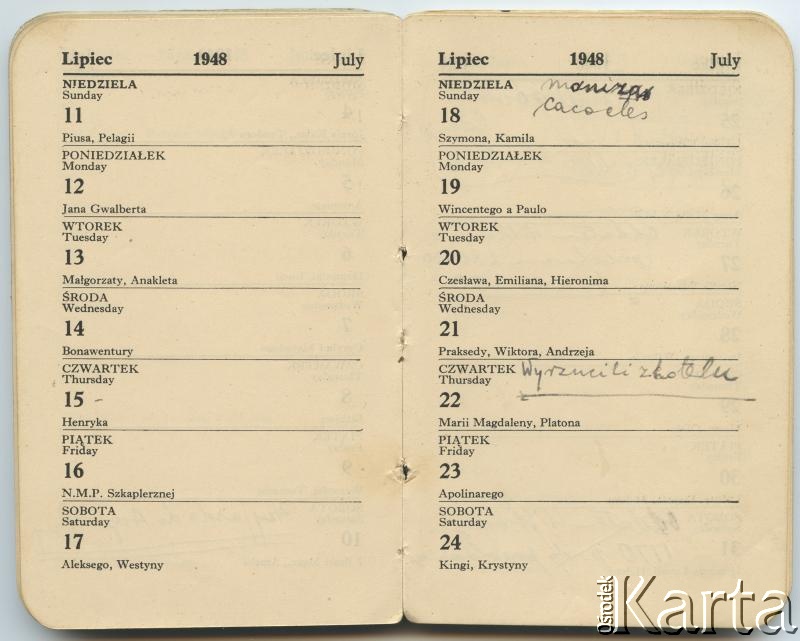 Lipiec 1948 July
NIEDZIELA
Sunday
11
Piusa, Pelagii
PONIEDZIAŁEK
Monday
12
Jana Gwalberta
WTOREK
Tuesday
13
Małgorzaty, Anakleta
ŚRODA
Wednesday
14
Bonawentury
CZWARTEK
Thursday
15 -
Henryka
PIĄTEK
Friday
16
N.M.P. Szkaplerznej
SOBOTA
Saturday
17
Aleksego, Westyny
Lipiec 1948 July
NIEDZIELA
Sunday
18
Szymona, Kamila
PONIEDZIAŁEK
Monday
19
Wincentego a Paulo
WTOREK
Tuesday
20
Czesława, Emiliana, Hieronima
ŚRODA
Wednesday
21
Praksedy, Wiktora, Andrzeja
CZWARTEK Wyrzucili z hotelu
Thursday
22
Marii Magdaleny, Platona
PIĄTEK
Friday
23
Apolinarego
SOBOTA
Saturday
24
Kingi, Krystyny
Ośrodek
Karta